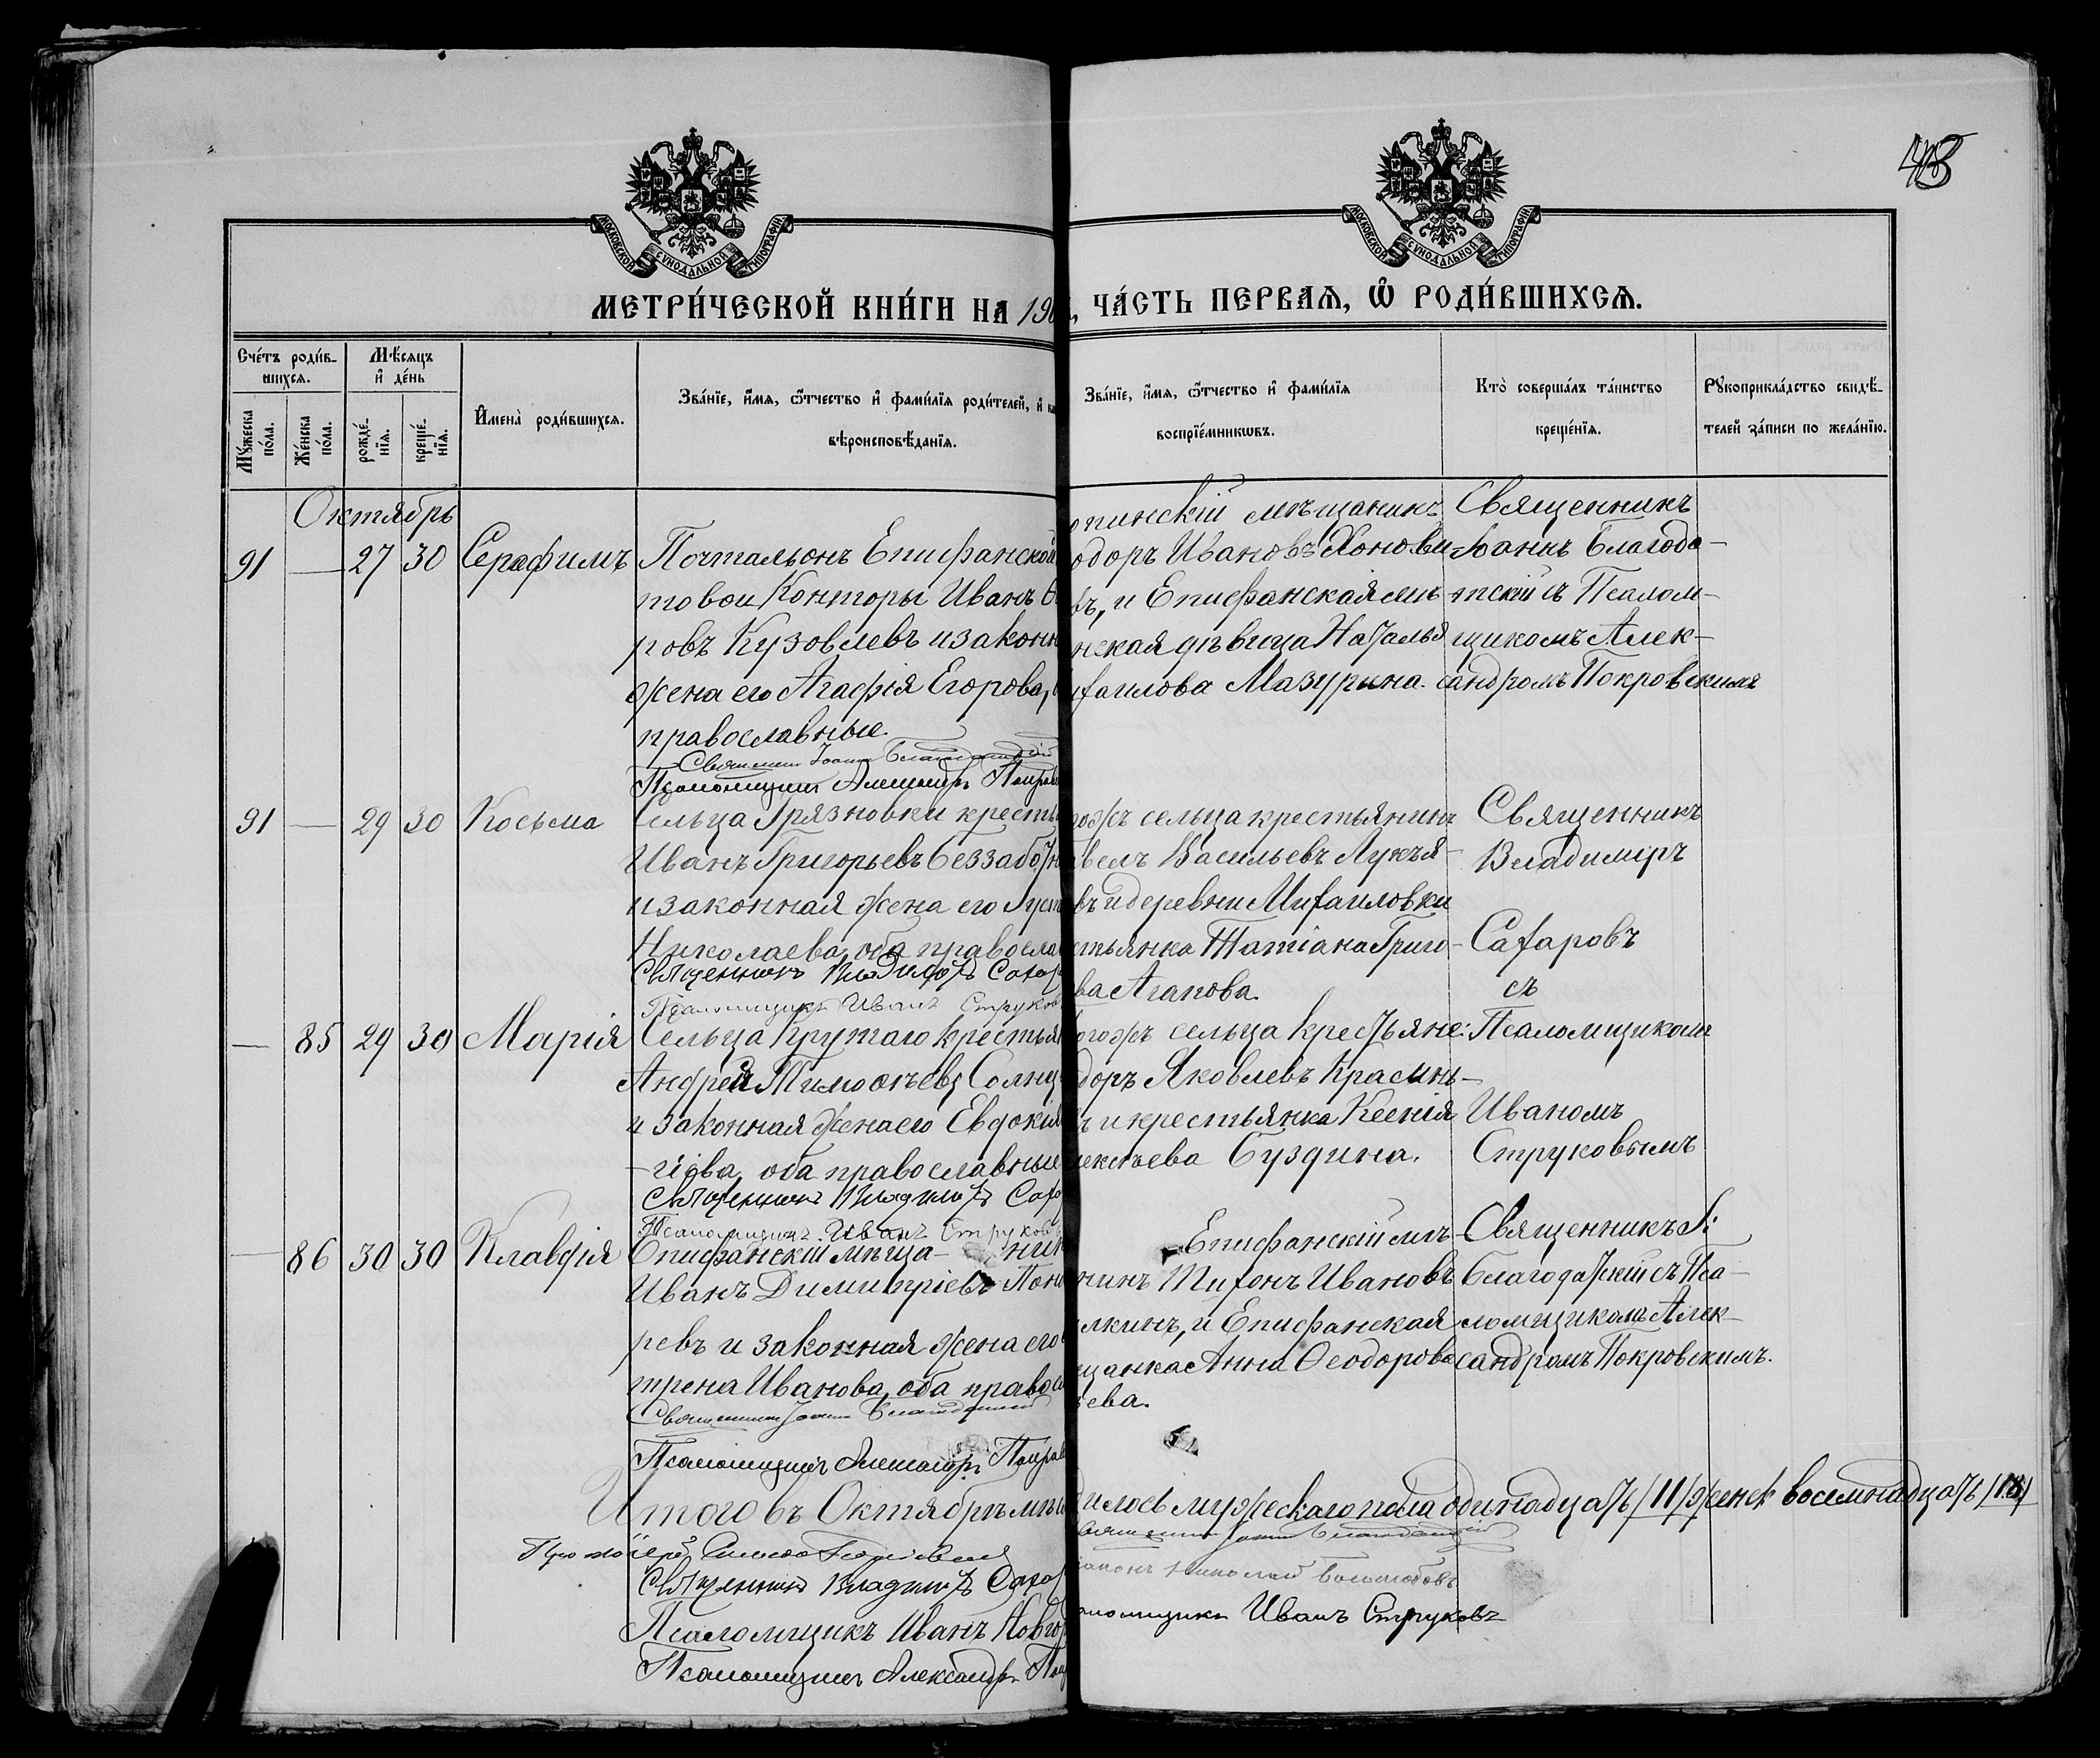 43
МОСКОВСКОЙ СѴНОДАЛЬНОЙ ТИПОГРАФІИ.
МОСКОВСКОЙ СѴНОДАЛЬНОЙ ТИПОГРАФІИ.
МЕТРИ́ЧЕСКОЙ КНИ́ГИ НА 190
, ЧА́СТЬ ПЕРВАЯ, Ѿ РОДИ́ВШИХСЯ.
Сче́тъ роди́в-
шихся.
Мꙋ́жеска по́ла.
Же́нска по́ла.
Мѣ́сяцъ
и҆ де́нь
рожде́-
нїя.
креще́-
нїя.
И҆мена̀ роди́вшихся.
Зва́нїе, и҆́мя, ѻ҆́тчество и҆ фами́лїя роди́телей, и҆
вѣроисповѣ́данїя.
Зва́нїе, и҆́мя, ѻ҆́тчество и҆ фами́лїя
воспрїе́мникѡвъ.
Кто̀ соверша́лъ та́инство
креще́нїя.
Рꙋкоприкла́дство свидѣ́-
телей за́писи по жела́нїю.
Октябрь
91 — 27 30 Серафимъ
Почтальонъ Епифанской
товои Конторы Иванъ
ровъ Кузовлевъ и законн
жена его Агафія Егорова,
православные.
Священник Іоанн Благодатскій
Псаломщикъ Александръ Покров
опинскій мѣщанинъ
одоръ Ивановъ
въ, и Епифанская мѣ-
нская дѣвица Наталья
ихаилова Мазурина.
Священникъ
Іоаннъ Благода-
тскій съ Псалом-
щикомъ Алек-
сандромъ Покровскимъ
91 — 29 30 Косьма
Сельца Грязновки кресть
Иванъ Григорьевъ Беззабот
и законная жена его Уст
Николаева, оба правосла
Священникъ Владиміръ Сахар
Псаломщикъ Иванъ Струков
гожъ сельца крестьянинъ
авелъ Васильевъ Лукья-
въ и деревни Михаиловки
стьянка Татіана Григо-
ва Агапова.
Священникъ
Владиміръ
Сахаровъ
съ
— 85 29 30 Марія
Сельца Крутаго крестья
Андрей Тимоѳеевъ Солнц
и законная жена его Евдокія
оба православные
Священникъ Владиміръ Сахар
Псаломщикъ Иванъ Струковъ
огожъ сельца крестьяне:
доръ Яковлевъ Красинь-
ъ и крестьянка Ксенія
лексѣева Буздина.
Псаломщикомъ
Иваномъ
Струковымъ
— 86 30 30 Клавдія
Епифанскій мѣща- нин
Иванъ Димитріевъ Поно
ревъ и законная жена его
трена Иванова, оба правосл
Священник Іоанн Благодатскій
Псаломщикъ Александръ Покров
Епифанскій мѣ-
нинъ Тихонъ Ивановъ
лкинъ, и Епифанская
щанка Анна Ѳеодорова
ева.
Священникъ І.
Благодатскій съ Пса-
ломщикомъ Алек-
сандромъ Покровскимъ.
Итого въ Октябрѣ мѣ
дилось мужескаго пола одинадцать /11/ женск восемнадцать /18/
Священник Іоанн Благодатскій
Протоіерей
Священникъ Владиміръ Сахар
іаконъ Николай
Псаломщикъ Иванъ Новго
аломщикъ Иванъ Струковъ
Псаломщикъ Александръ Пок